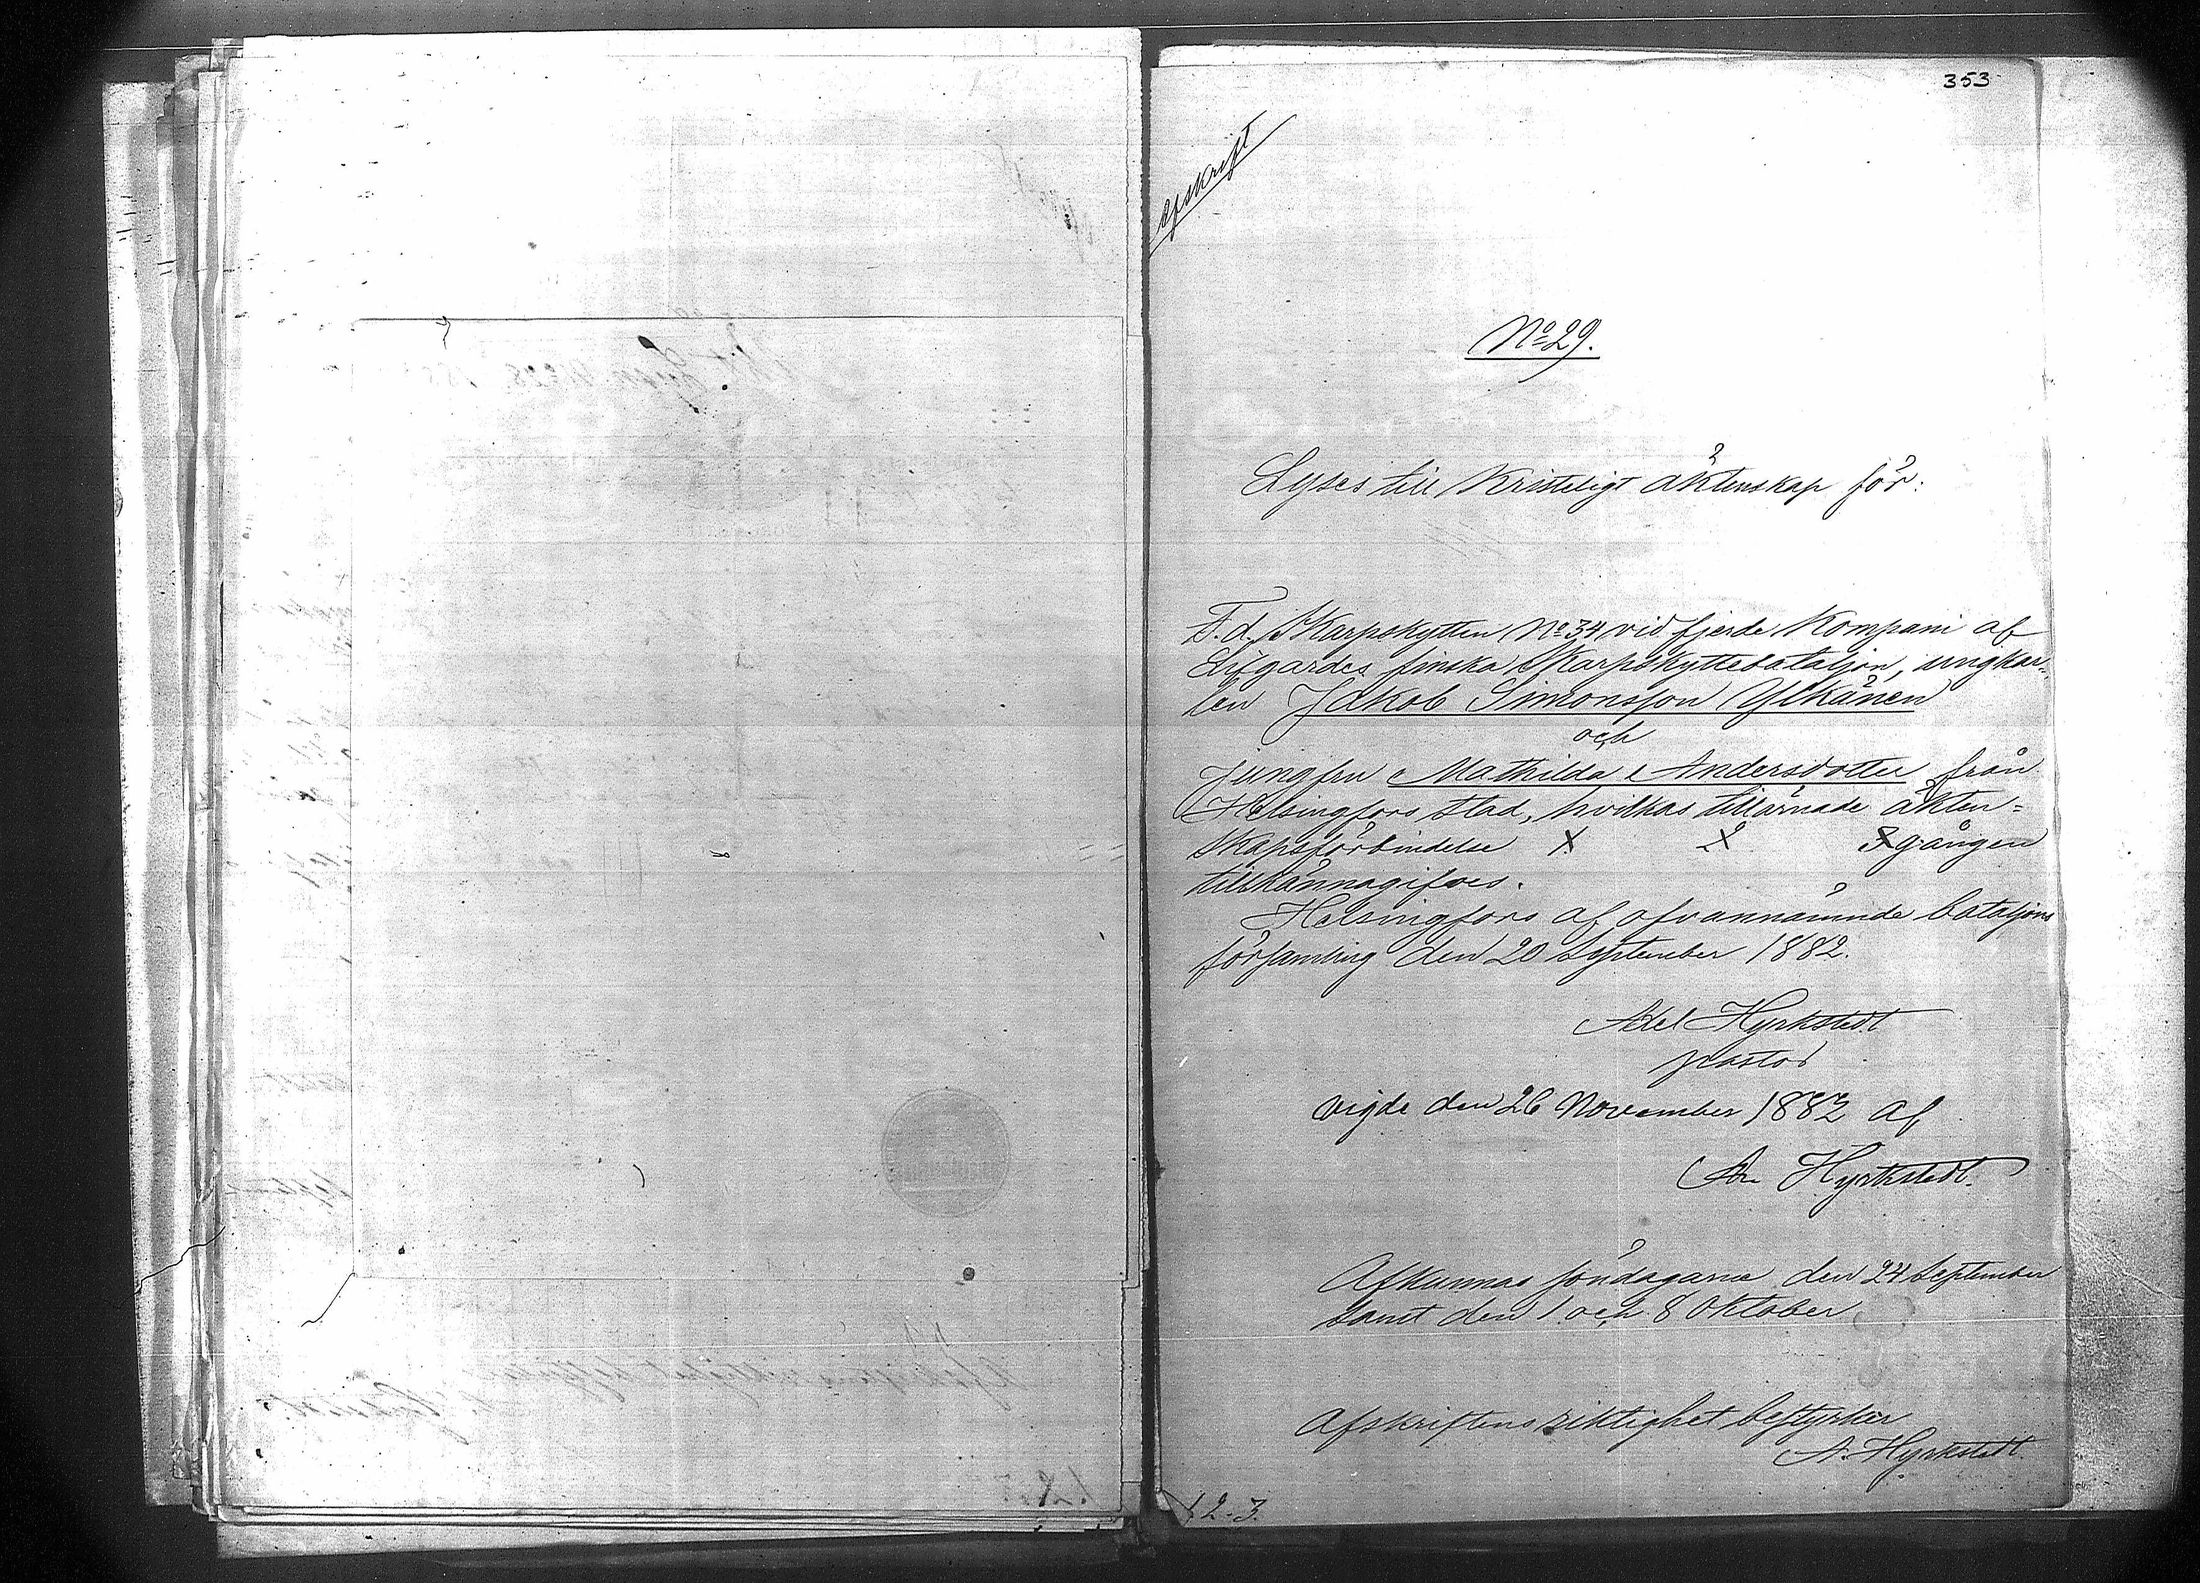 353
Afskrift
No 29.
Lyses till Kristeligt äktenskap för:
F.d. Skarpskytten No 34 vid fjerde Kompani af
Lifgardes finska Skarpskyttebataljon, ungkar-
len Jakob Simonsson Ylkänen
och
jungfru Mathilda Andersdotter från
Helsingfors stad, hvilkas tillärnade äkten=
skapsförbindelse 1 2 3 gången
tillkännagifves.
Helsingfors af ofvannämnde bataljons
församling den 20 September 1882.
Axel Hyrkstedt
pastor
vigde den 26 November 1882 af
Ax Hyrkstedt.
Afkunnas söndagarne den 24 September
samt den 1 och 8 Oktober
Afskriftens riktighet bestyrker
A. Hyrkstedt.
1 2-3.